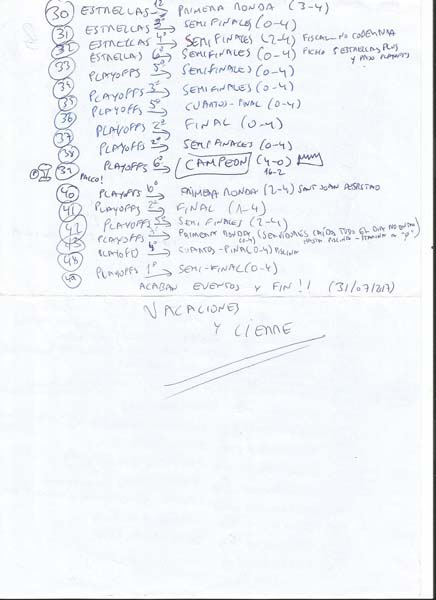 30 ESTRELLAS 12º → PRIMERA RONDA (3-4)
31 ESTRELLAS 3º → SEMIFINALES (0-4)
32 ESTRELLAS 4º → SEMIFINALES (2-4) FISCAL NO
33 ESTRELLAS 6º → SEMIFINALES (0-4) FICHO 5 ESTRELLAS PLUS
Y PASO PLAYOFFS
PLAYOFFS 5º → SEMIFINALES (0-4)
PLAYOFFS 3º → SEMIFINALES (0-4)
35 PLAYOFFS 5º → CUARTOS-FINAL (0-4)
36 PLAYOFFS 2º → FINAL (0-4)
37 PLAYOFFS 2º → SEMIFINALES (0-4)
38 PLAYOFFS 6º → CAMPEON (4-0)
39 PALCO! 16-2
40 PLAYOFFS 6º → PRIMERA RONDA (2-4) SANT JOAN
41 PLAYOFFS 2º → FINAL (1-4)
42 PLAYOFFS 5º → SEMIFINALES (2-4)
43 PLAYOFFS → PRIMERA RONDA (0-4) (SERVIDORES CAIDOS TODO EL DIA
PLAYOFFS → CUARTOS-FINAL (0-4) PISCINA
PLAYOFFS 1º → SEMI-FINAL (0-4)
ACABAN EVENTOS Y FIN!! (31/07/2017)
VACACIONES
Y CIERRE